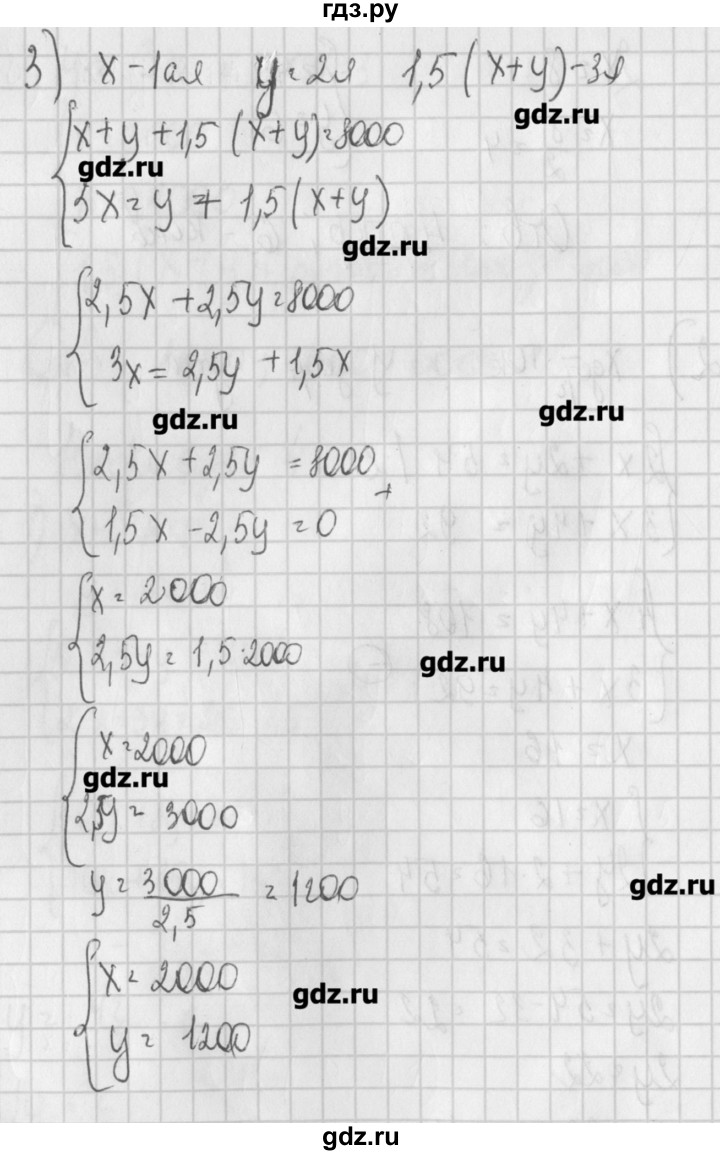 гдз.ру
3) x - 1ая y = 2я 1,5(x+y) - 3я
gdz.ru
x+y+1,5(x+y)=8000
gdz.ru
3x=y+1,5(x+y)
gdz.ru
2,5x+2,5y=8000
3x=2,5y+1,5x
gdz.ru
gdz.ru
2,5x+2,5y=8000
+
1,5x-2,5y=0
x=2000
2,5y=1,5·2000
gdz.ru
x=2000
gdz.ru
2,5y=3000
gdz.ru
y=3000/2,5=1200
x=2000
gdz.ru
y=1200
gdz.ru